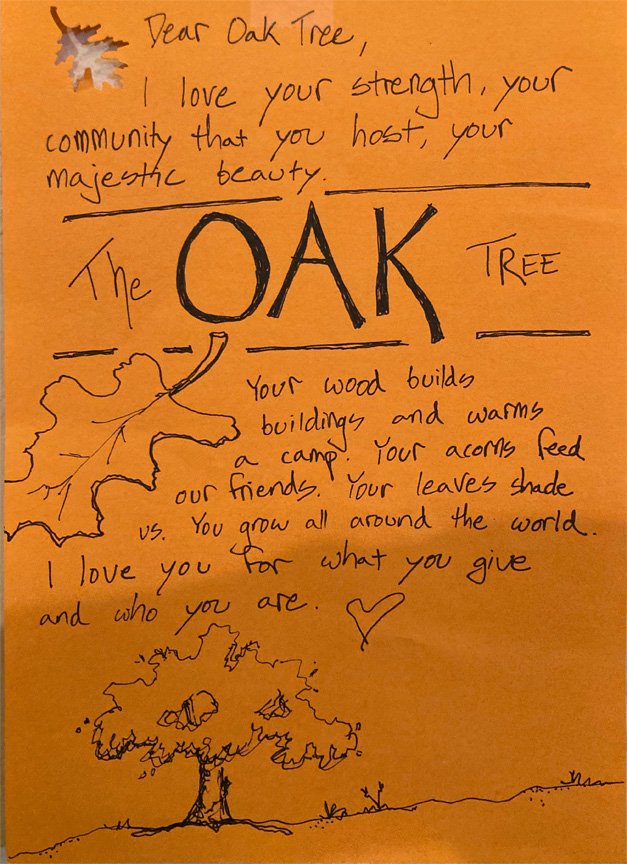 Dear Oak Tree,
I love your strength, your
community that you host, your
majestic beauty.
The OAK TREE
Your wood builds
buildings and warms
a camp. Your acorns feed
our friends. Your leaves shade
us. You grow all around the world.
I love you for what you give
and who you are.